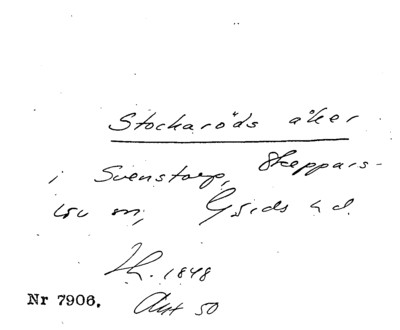 Stockaröds åker
i Svenstorp, Skeppars-
löv sn, Gärds hd.
Lh. 1848
Nr 7906. Akt 50